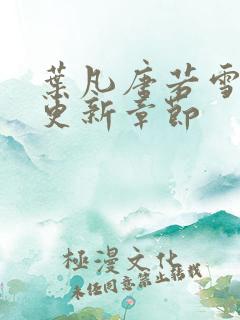 葉凡唐若雪
更新章節
極漫文化
未经同意禁止转载